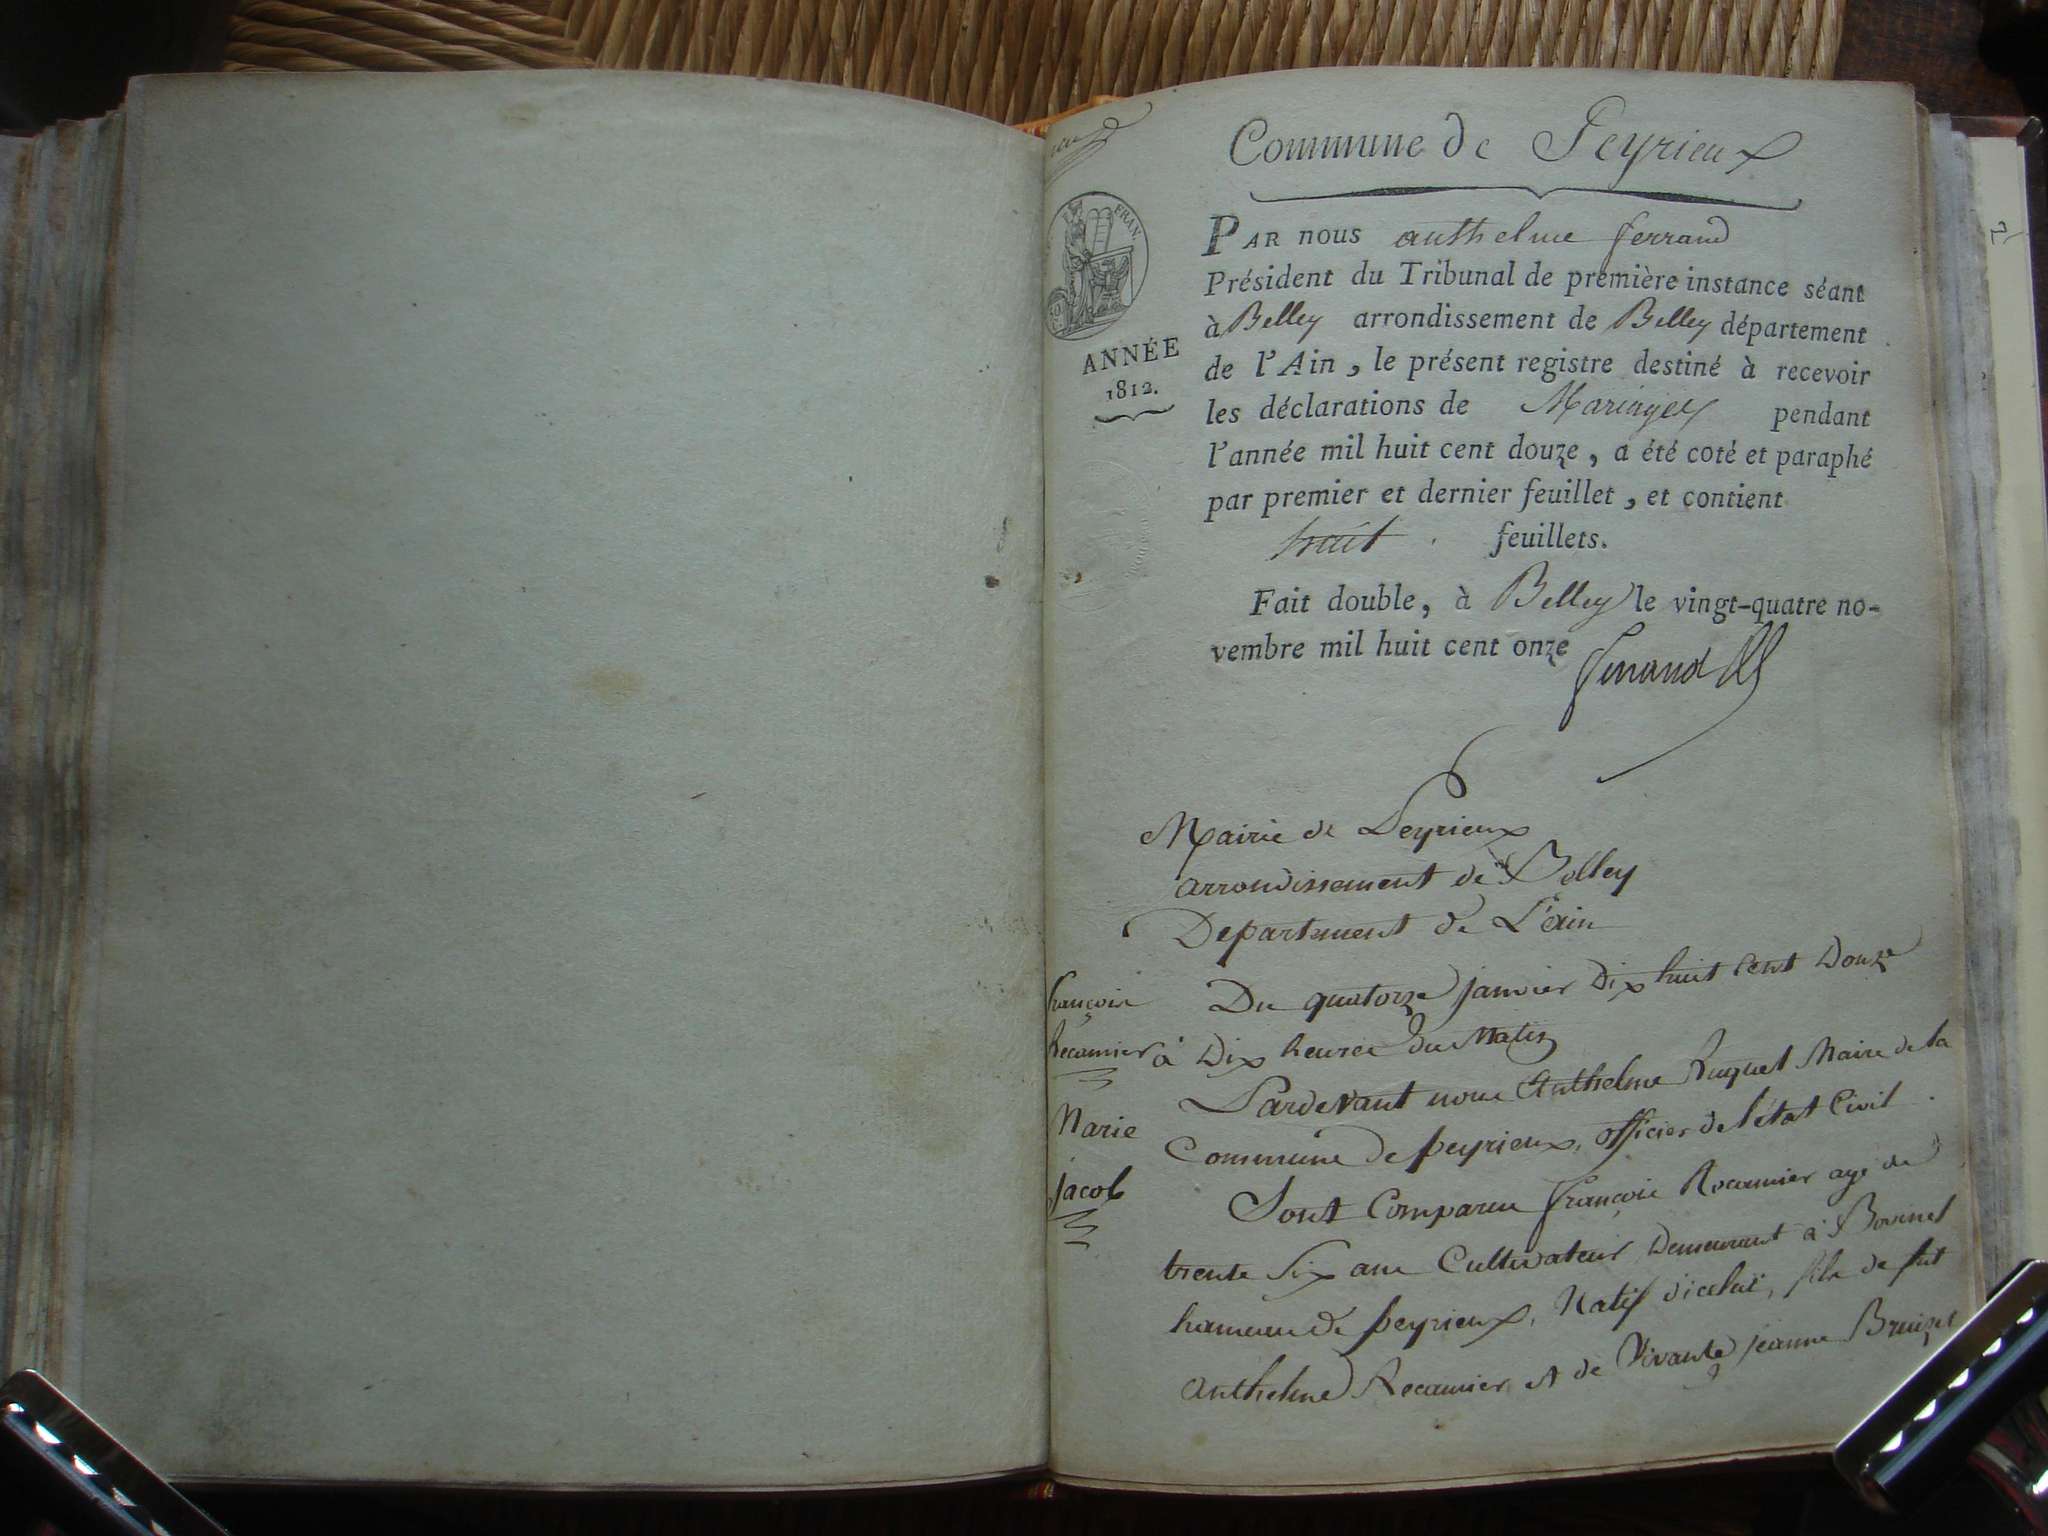 Commune de Peyrieux
FRAN.
ANNÉE
1812.
PAR nous anthelme ferrand
Président du Tribunal de première instance séant
à Belley arrondissement de Belley département
de l'Ain, le présent registre destiné à recevoir
les déclarations de Mariages pendant
l'année mil huit cent douze, a été coté et paraphé
par premier et dernier feuillet, et contient
huit feuillets.
Fait double, à Belley le vingt-quatre no-
vembre mil huit cent onze
ferrand
Mairie de Peyrieux
arrondissement de Belley
Departement de L'ain
françois
Recamier
Marie
jacob
Du quatorze janvier Dix huit Cent Douze
à Dix heures du Matin
Pardevant nous Anthelme Ruquet Maire de la
Commune de peyrieux, officier de l'état Civil
Sont Comparus françois Recamier agé de
trente Six ans Cultivateur Demeurant à
hameau de peyrieux, Natif d'icelui, fils de fut
anthelme Recamier et de Vivante jeanne